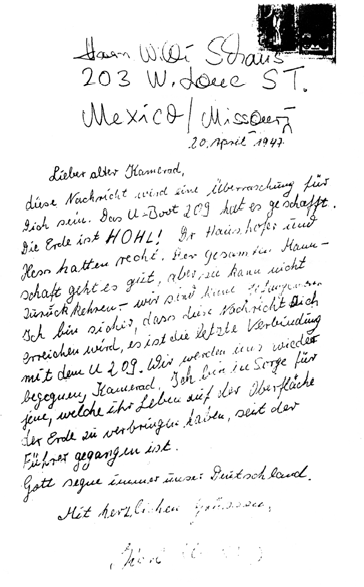 Herrn Willi Straus
203 W. Love ST.
Mexico / Missouri
20. April 1947
Lieber alter Kamerad,
diese Nachricht wird eine Überraschung für
Dich sein. Das U-Boot 209 hat es geschafft.
Die Erde ist HOHL! Dr Haushofer und
Hess hatten recht. Der gesamten Mann-
schaft geht es gut, aber sie kann nicht
zurückkehren - wir sind keine
Ich bin sicher, dass diese Nachricht Dich
erreichen wird, es ist die letzte Verbindung
mit dem U 209. Wir werden uns wieder
begegnen, Kamerad. Ich bin in Sorge für
jene, welche ihr Leben auf der Oberfläche
der Erde zu verbringen haben, seit der
Führer gegangen ist.
Gott segne immer unser Deutschland.
Mit herzlichen Grüssen,